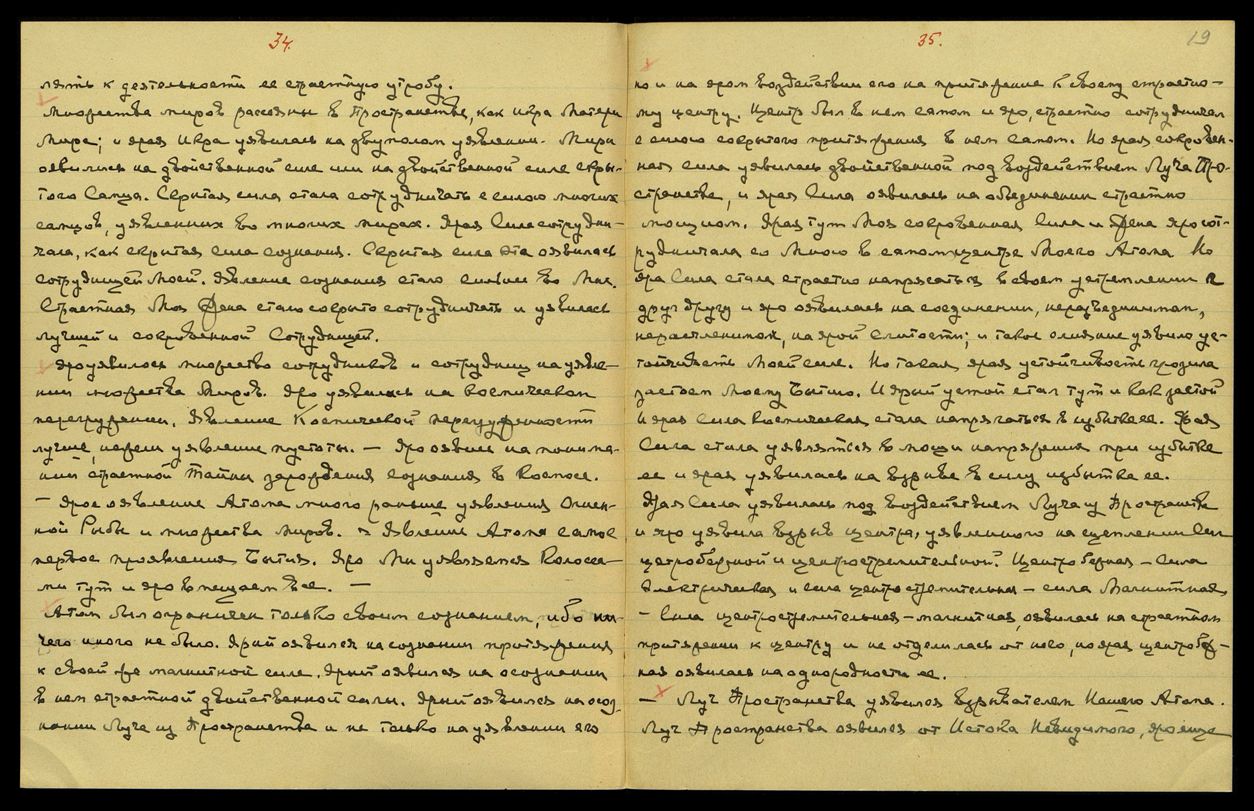 34.
лять к деятельности ее страстную утробу.
Множества миров рассеяны в Пространстве, как икра Матери
Мира; и ярая Икра уявилась на двуполом уявлении. Миры
оявились на двойственной силе или на двойственной силе скры-
того Самца. Скрытая сила стала сотрудничать с силою многих
самцов, уявленных во многих мирах. Ярая Сила сотрудни-
чала, как скрытая сила сознания. Скрытая сила эта оявилась
сотрудницей Моей. Явление сознания стало сильнее во Мне.
Страстная Моя Жена стала сокрыто сотрудничать и уявилась
лучшей и сокровенной Сотрудницей.
Яро уявилось множество сотрудников и сотрудниц на уявле-
нии множества Миров. Яро уявились на космическом
перегружении. Явление Космической перегруженности
лучше, нежели уявление пустоты. — Яро оявись на понима-
нии страстной Тайны зарождения сознания в Космосе.
— Ярое оявление Атома много раньше уявления Огнен-
ной Рыбы и множества Миров. Явление Атома самое
первое проявление Бытия. Яро Мы уявляемся Колоса-
ми тут и яро вмещаем все. —
Атом был ограничен только своим сознанием, ибо ни-
чего иного не было. Ярый оявился на сознании притяжения
к своей же магнитной силе. Ярый оявился на осознании
в нем страстной двойственной силы. Ярый оявился на осоз-
нании Луча из Пространства и не только на уявлении его
35.
19
но и на яром воздействии его на притяжение к своему страстно-
му центру. Центр был в нем самом и яро, страстно сотрудничал
с силою сокрытого притяжения в нем самом. Но ярая сокровен-
ная сила уявилась двойственной под воздействием Луча Про-
странства, и ярая Сила оявилась на объединении страстно
мощном. Ярая тут Моя сокровенная Сила и Жена яро сот-
рудничала со Мною в самом центре Моего Атома. Но
яра Сила стала страстно напрягаться в своем устремлении к
друг другу и яро оявилась на соединении, неразъединимом,
нерасчленимом, на ярой слитости; и такое слияние уявило ус-
тойчивость Моей силе. Но такая ярая устойчивость грозила
застоем Моему Бытию. И ярый устой стал тут и как застой
и ярая Сила космическая стала напрягаться в избытке ее. Ярая
Сила стала уявляться в мощи напряжения при избытке
ее и ярая уявилась на взрыве в силу избытка ее.
Ярая Сила уявилась под воздействием Луча из Пространства
и яро уявила взрыв центра, уявленного на сцеплении Сил
центробежной и центростремительной. Центробежная — Сила
Электрическая и сила центростремительная — сила Магнитная
— Сила центростремительная — магнитная, оявилась на страстном
притяжении к центру и не отделилась от него, но ярая центробеж-
ная оявилась на однородности ее.
— Луч Пространства уявился взрывателем Нашего Атома.
Луч Пространства оявился от Истока Невидимого, яро еще